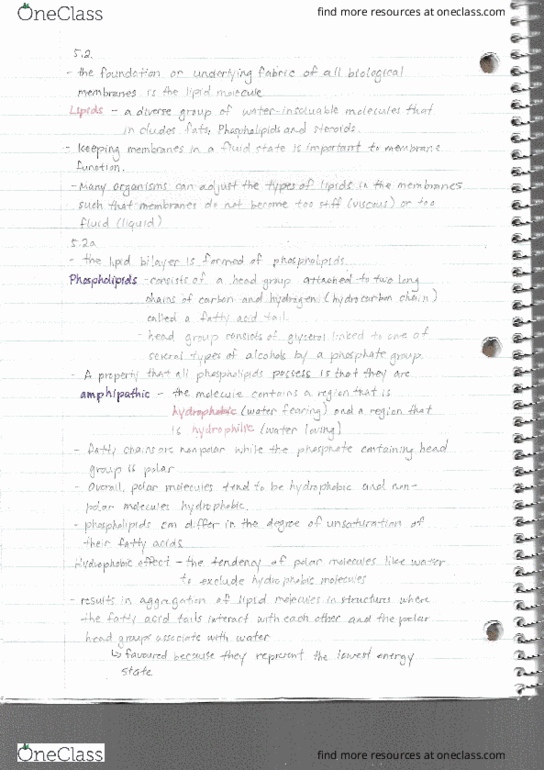 OneClass
find more resources at oneclass.com
5.2.
- the foundation or underlying fabric of all biological
membranes is the lipid molecule
Lipids - a diverse group of water-insoluable molecules that
includes fats, Phospholipids and steroids.
- keeping membranes in a fluid state is important to membrane
function.
- Many organisms can adjust the types of lipids in the membranes
such that membranes do not become too stiff (viscous) or too
fluid (liquid)
5.2a
- the lipid bilayer is formed of phospholipids.
Phospholipids - consists of a head group attached to two long
chains of carbon and hydrogen (hydrocarbon chain)
called a fatty acid tail.
- head group consists of glyceral linked to one of
several types of alcohols by a phosphate group.
- A property that all phospholipids possess is that they are
amphipathic - the molecule contains a region that is
hydrophobic (water fearing) and a region that
is hydrophilic (water loving)
- fatty chains are nonpolar while the phosphate containing head
group is polar
- Overall, polar molecules tend to be hydrophobic and non-
polar molecules hydrophobic.
- phospholipids can differ in the degree of unsaturation of
their fatty acids
Hydrophobic effect - the tendency of polar molecules like water
to exclude hydrophobic molecules
- results in aggregation of lipid molecules in structures where
the fatty acid tails interact with each other and the polar
head groups associate with water
↳ favoured because they represent the lowest energy
state
OneClass
find more resources at oneclass.com